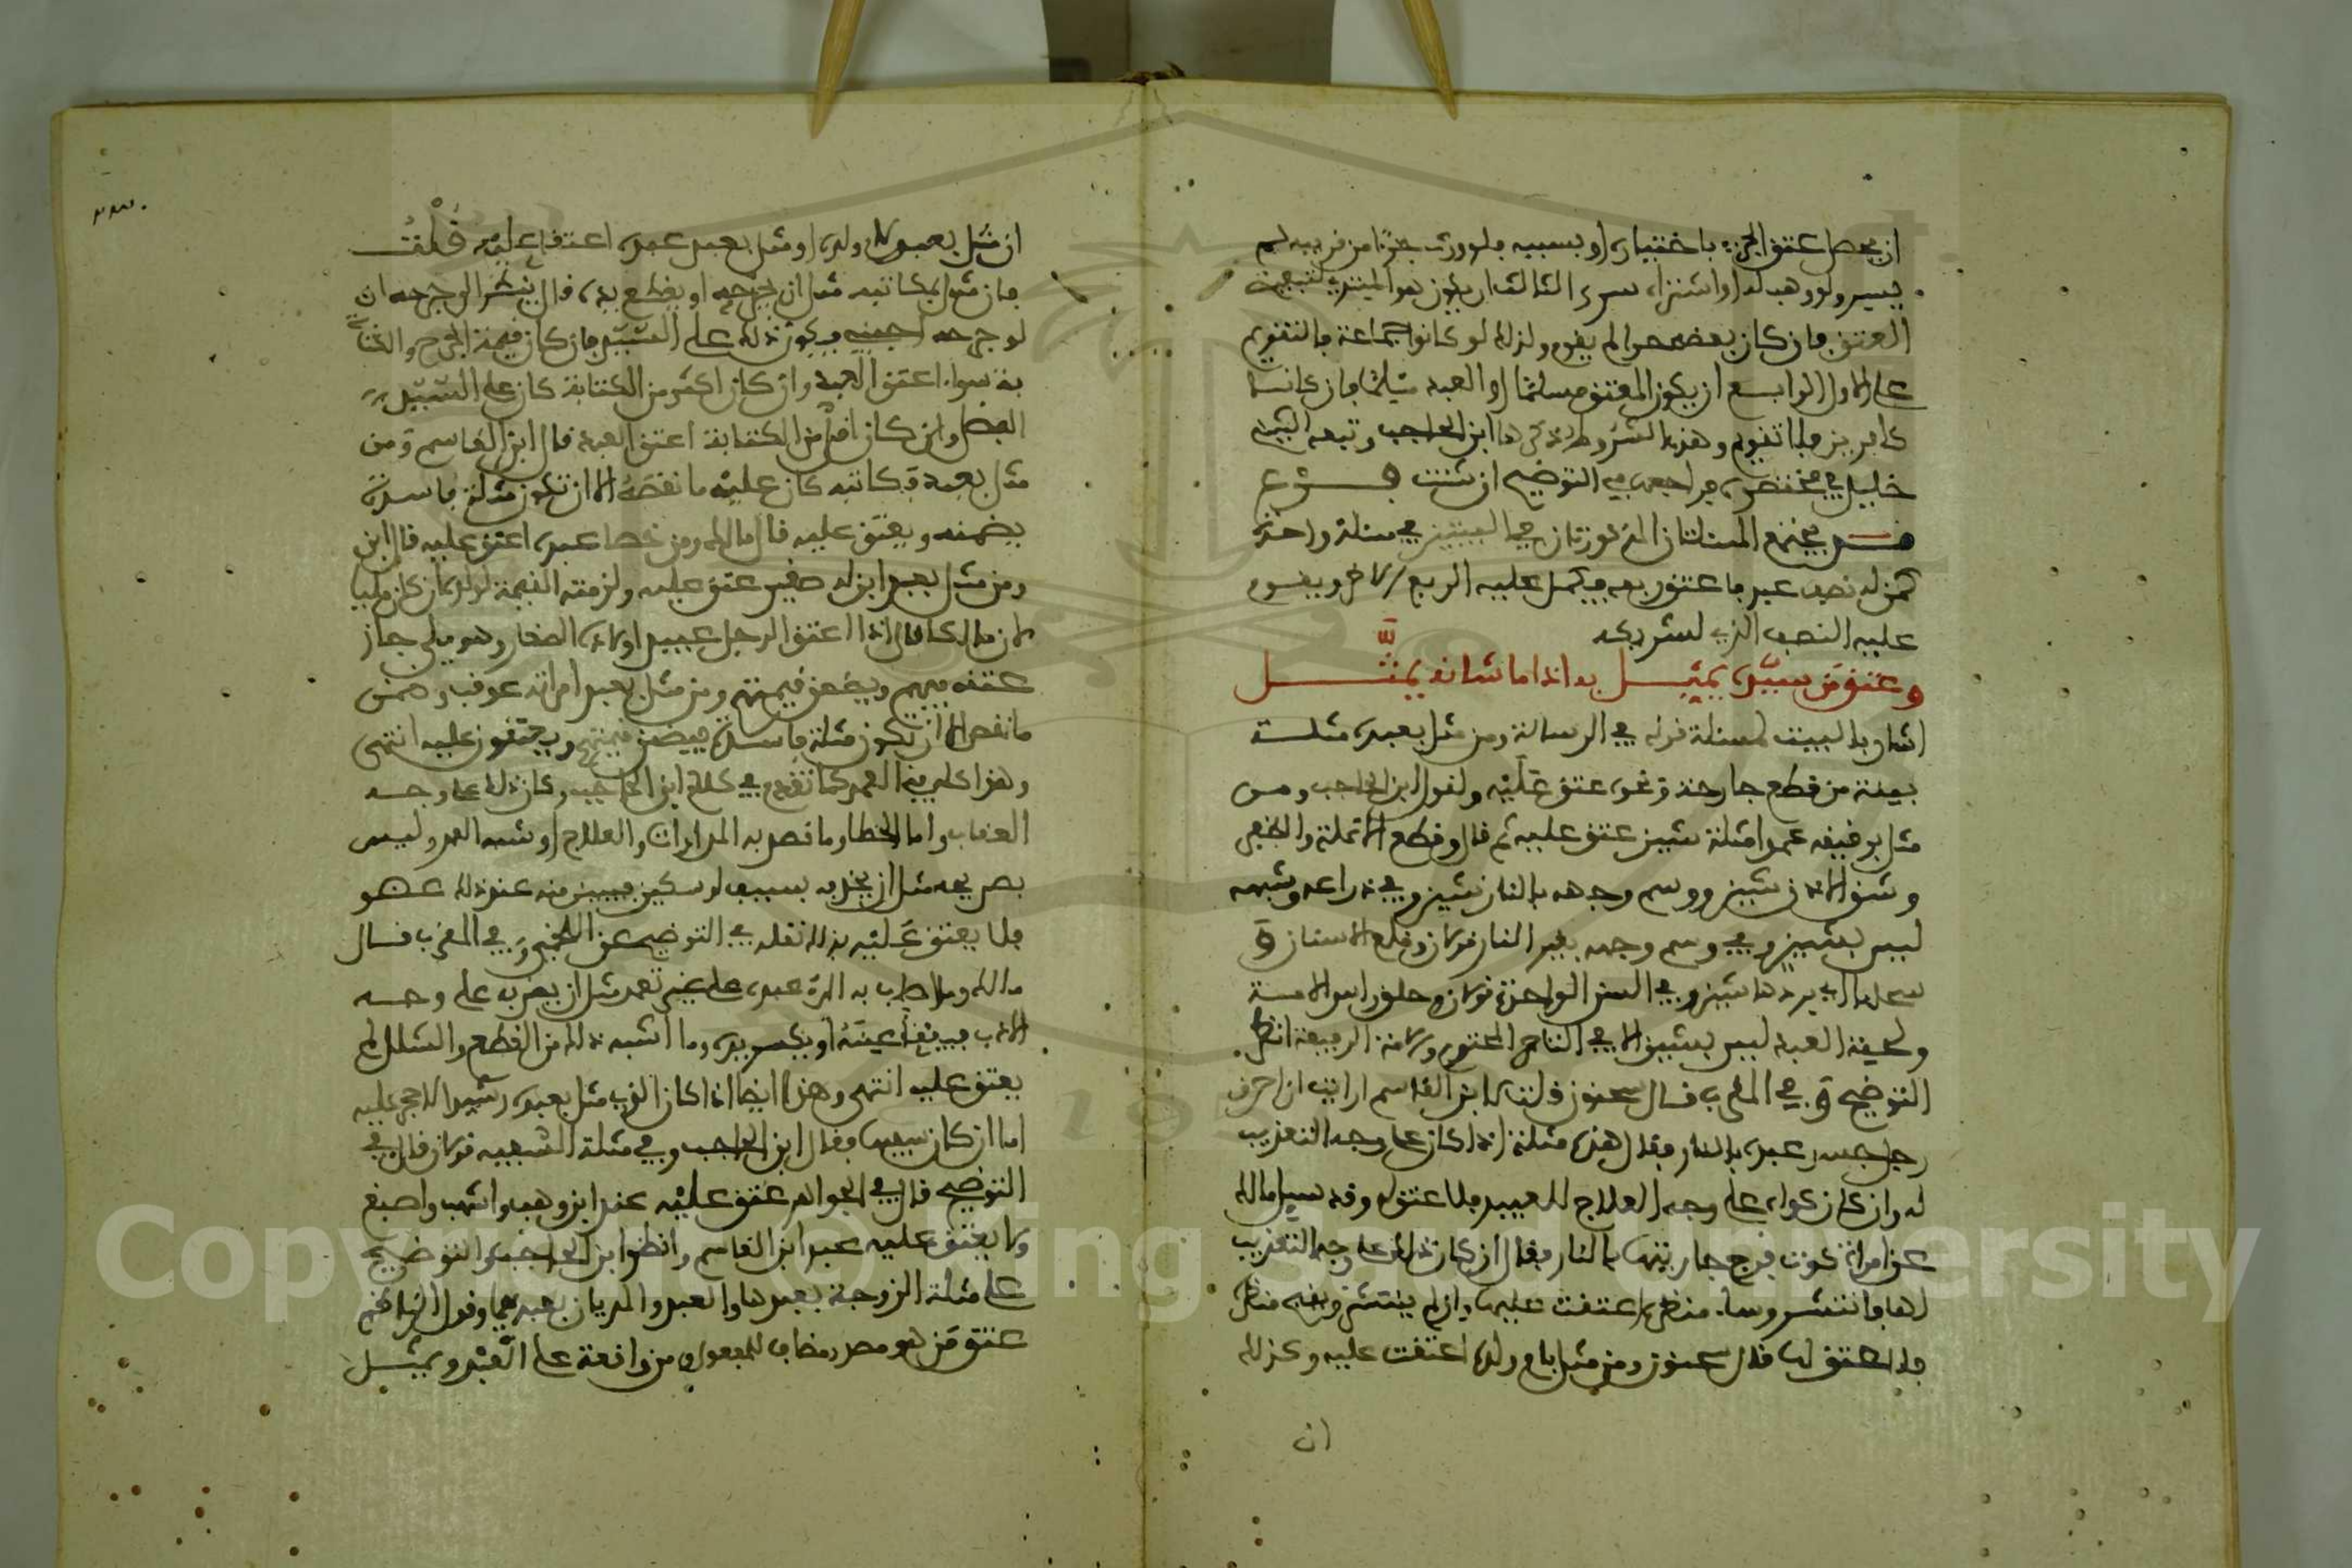 ان يحصل عتق الجزء باختياره او بسببه فلو ورث جزءا من قريبه لم
يسر ولو وهب له او اشتراه سرى الثالث ان يكون هو المبتدئ لتبعيض
العتق فان كان بعضه حرا لم يقوم ولذلك لو كانوا جماعة فالتقويم
على الاول الرابع ان يكون المعتق مسلما او العبد مسلما فان كانا
كافرين فلا تقويم وهذه الشروط ذكرها ابن الحاجب وتبعه الشيخ
خليل في مختصره فراجعه في التوضيح ان شئت فرع
قد يجتمع المسئلتان المذكورتان في البيتين في مسئلة واحدة
كمن له نصف عبد فاعتق ربعه فيكمل عليه الربع الاخر ويقوم
عليه النصف الذي لشريكه
وعتق من سيده يمثل به اذا ما شانه يمثل
اشار بالبيت لمسئلة قوله في الرسالة ومن مثل بعبده مثلة
بينة من قطع جارحة ونحوه عتق عليه ولقول ابن الحاجب ومن
مثل برقيقه عمدا مثلة شين عتق عليه ثم قال وقطع الانملة والظفر
وشق الاذن شين ووسم وجهه بالنار شين وفي ذراعه وشبهه
ليس بشين وفي وسم وجهه بغير النار قولان وقلع الاسنان و
سحلها اي بردها شين وفي السن الواحدة قولان وحلق راس الامة
ولحية العبد ليس بشين الا في التاجر المحترم والامة الرفيعة انظر
التوضيح وفي المغرب قال سحنون قلت لابن القاسم ارايت ان احرق
رجل جسد عبده بالنار فقال هذه مثلة اذا كان على وجه التعذيب
له وان كان كواه على وجه العلاج للعبيد فلا عتق له وقد سيل مالك
عن امراة كوت فرج جاريتها بالنار فقال ان كان ذلك على وجه التعذيب
لها فانتشر وساء منظره اعتقت عليها وان لم ينتشر ويقبح منظره
فلا عتق لها قال سحنون ومن مثل بام ولده اعتقت عليه وكذلك
ان
ان مثل بعبد ولده او مثل بعبد عبده اعتقا عليه قلت
فان مثل بمكاتبه مثل ان يجرحه او يقطع يده قال ينظر الى جرحه ان
لو جرحه اجنبي ويكون ذلك على السيد فان كان قيمة الجرح والكتا
بة سواء اعتق العبد وان كان اكثر من الكتابة كان على السيد
الفضل وان كان اقل من الكتابة اعتق العبد قال ابن القاسم ومن
مثل بعبد مكاتبه كان عليه ما نقصه الا ان تكون مثلة فاسدة
يضمنه ويعتق عليه قال مالك ومن خصا عبده اعتق عليه قال ابن
ومن مثل بعبد ابن له صغير عتق عليه ولزمته القيمة لولده ان كان مليا
لان مالكا قال اذا اعتق الرجل عبيد اولاده الصغار وهو ملي جاز
عتقه فيهم ويضمن قيمتهم ومن مثل بعبد امراته عوقب وضمن
ما نقص الا ان تكون مثلة فاسدة فيضمن قيمتهم ويعتقون عليه انتهى
وهذا كله في العمد كما تقدم في كلام ابن الحاجب وكان ذلك على وجه
العذاب واما الخطا وما قصد به المداوات والعلاج او شبه العمد وليس
بصريحه مثل ان يحذفه بسيف او سكين فيبين منه عند ذلك عضو
فلا يعتق عليه بذلك نقله في التوضيح عن اللخمي وفي المغرب قال
مالك وما ضرب به المرء عبده على غير تعمد مثل ان يضرب على وجه
الادب فيفقا عينه او يكسر يده وما اشبه ذلك من القطع والشلل لم
يعتق عليه انتهى وهذا ايضا اذا كان الذي مثل بعبده رشيدا لا حجر عليه
اما ان كان سفيها فقال ابن الحاجب وفي مثلة السفيه قولان قال في
التوضيح قال في الجواهر عتق عليه عند ابن وهب واشهب واصبغ
ولا يعتق عليه عند ابن القاسم وانظر ابن الحاجب والتوضيح
على مثلة الزوجة بعبدها والعبد والمديان بعبدهما وقول الناظم
عتق من هو مصدر مضاف للمفعول ومن واقعة على العبد ويمثل